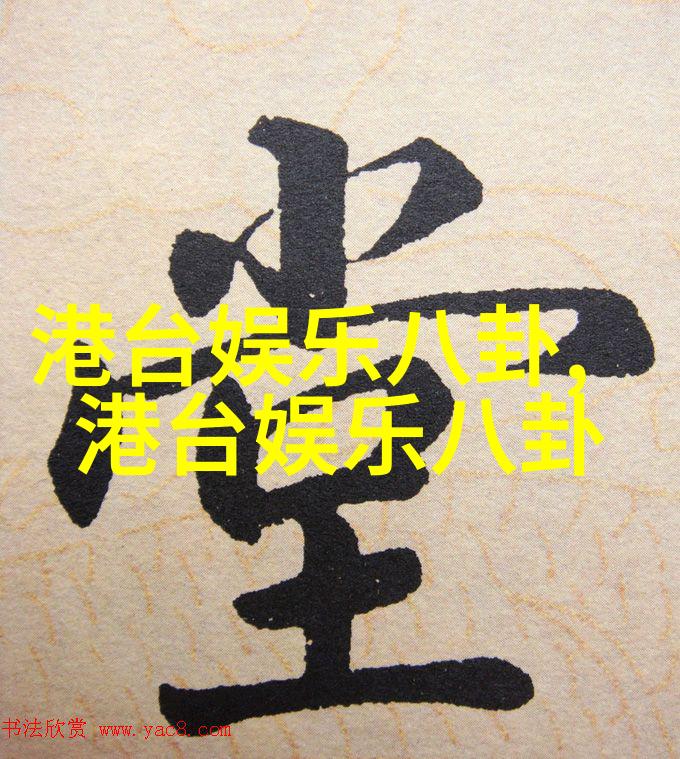 堂
港台娱乐八卦,
港台娱乐八卦
书法欣赏 www.yac8.com